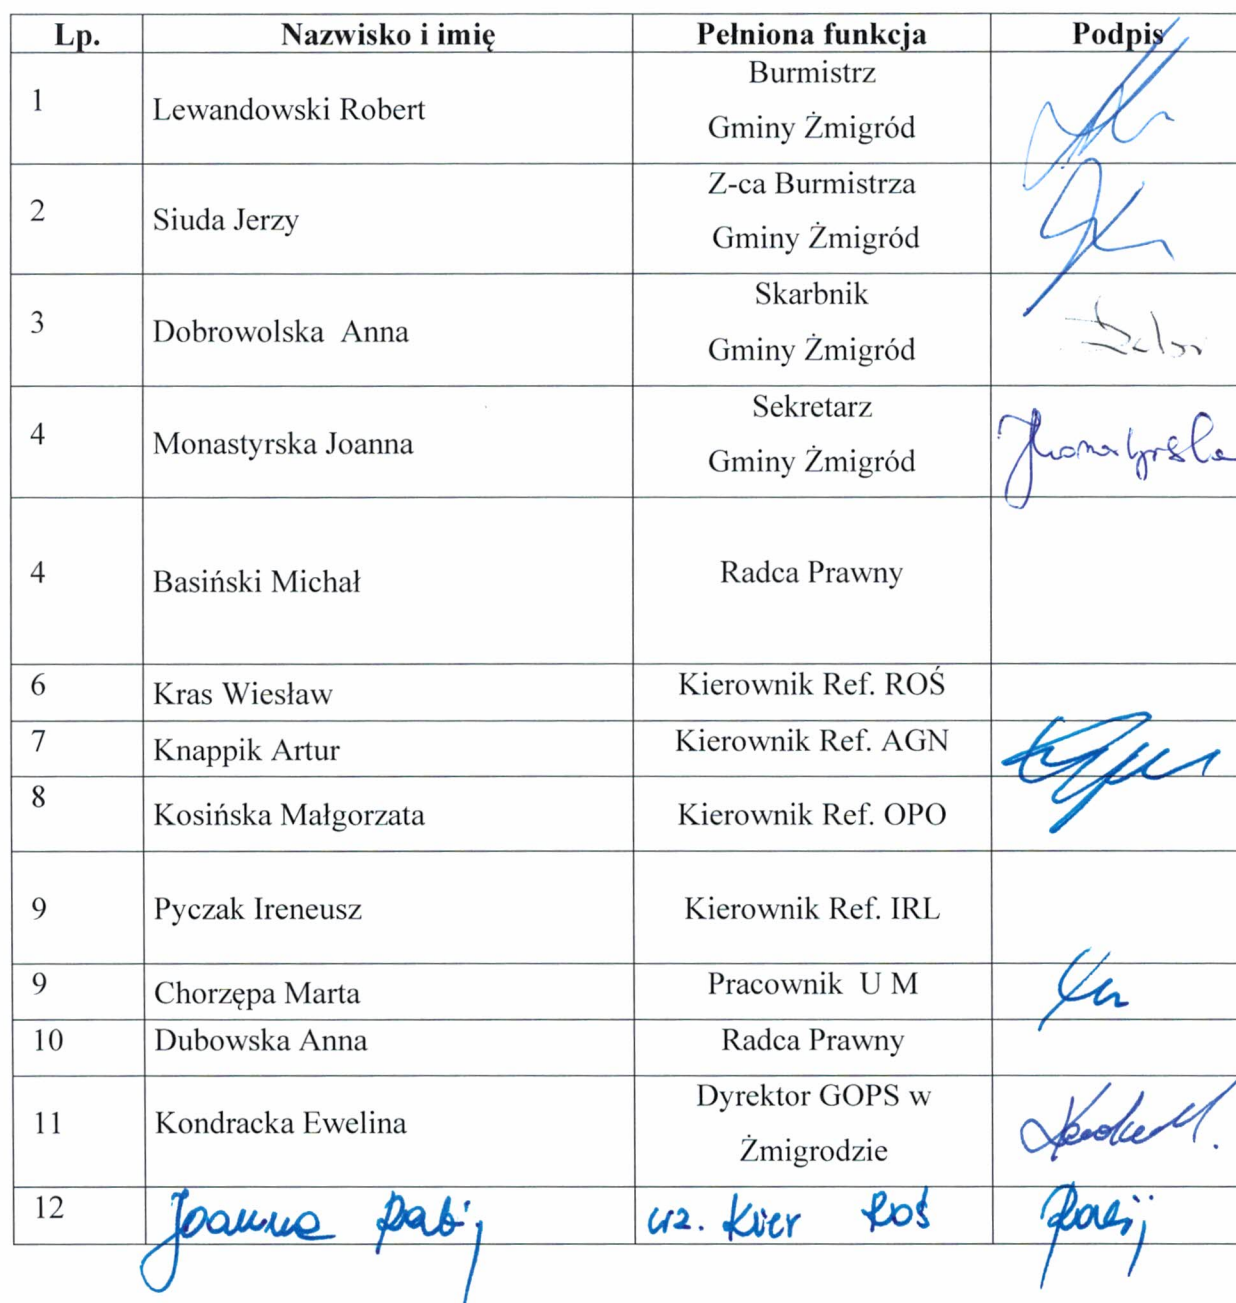 Lp. Nazwisko i imię Pełniona funkcja Podpis
1 Lewandowski Robert Burmistrz
Gminy Żmigród
2 Siuda Jerzy Z-ca Burmistrza
Gminy Żmigród
3 Dobrowolska Anna Skarbnik
Gminy Żmigród
4 Monastyrska Joanna Sekretarz
Gminy Żmigród
4 Basiński Michał Radca Prawny
6 Kras Wiesław Kierownik Ref. ROŚ
7 Knappik Artur Kierownik Ref. AGN
8 Kosińska Małgorzata Kierownik Ref. OPO
9 Pyczak Ireneusz Kierownik Ref. IRL
9 Chorzępa Marta Pracownik U M
10 Dubowska Anna Radca Prawny
11 Kondracka Ewelina Dyrektor GOPS w
Żmigrodzie
12 Joanna Rabij wz. Kier ROŚ Rabij